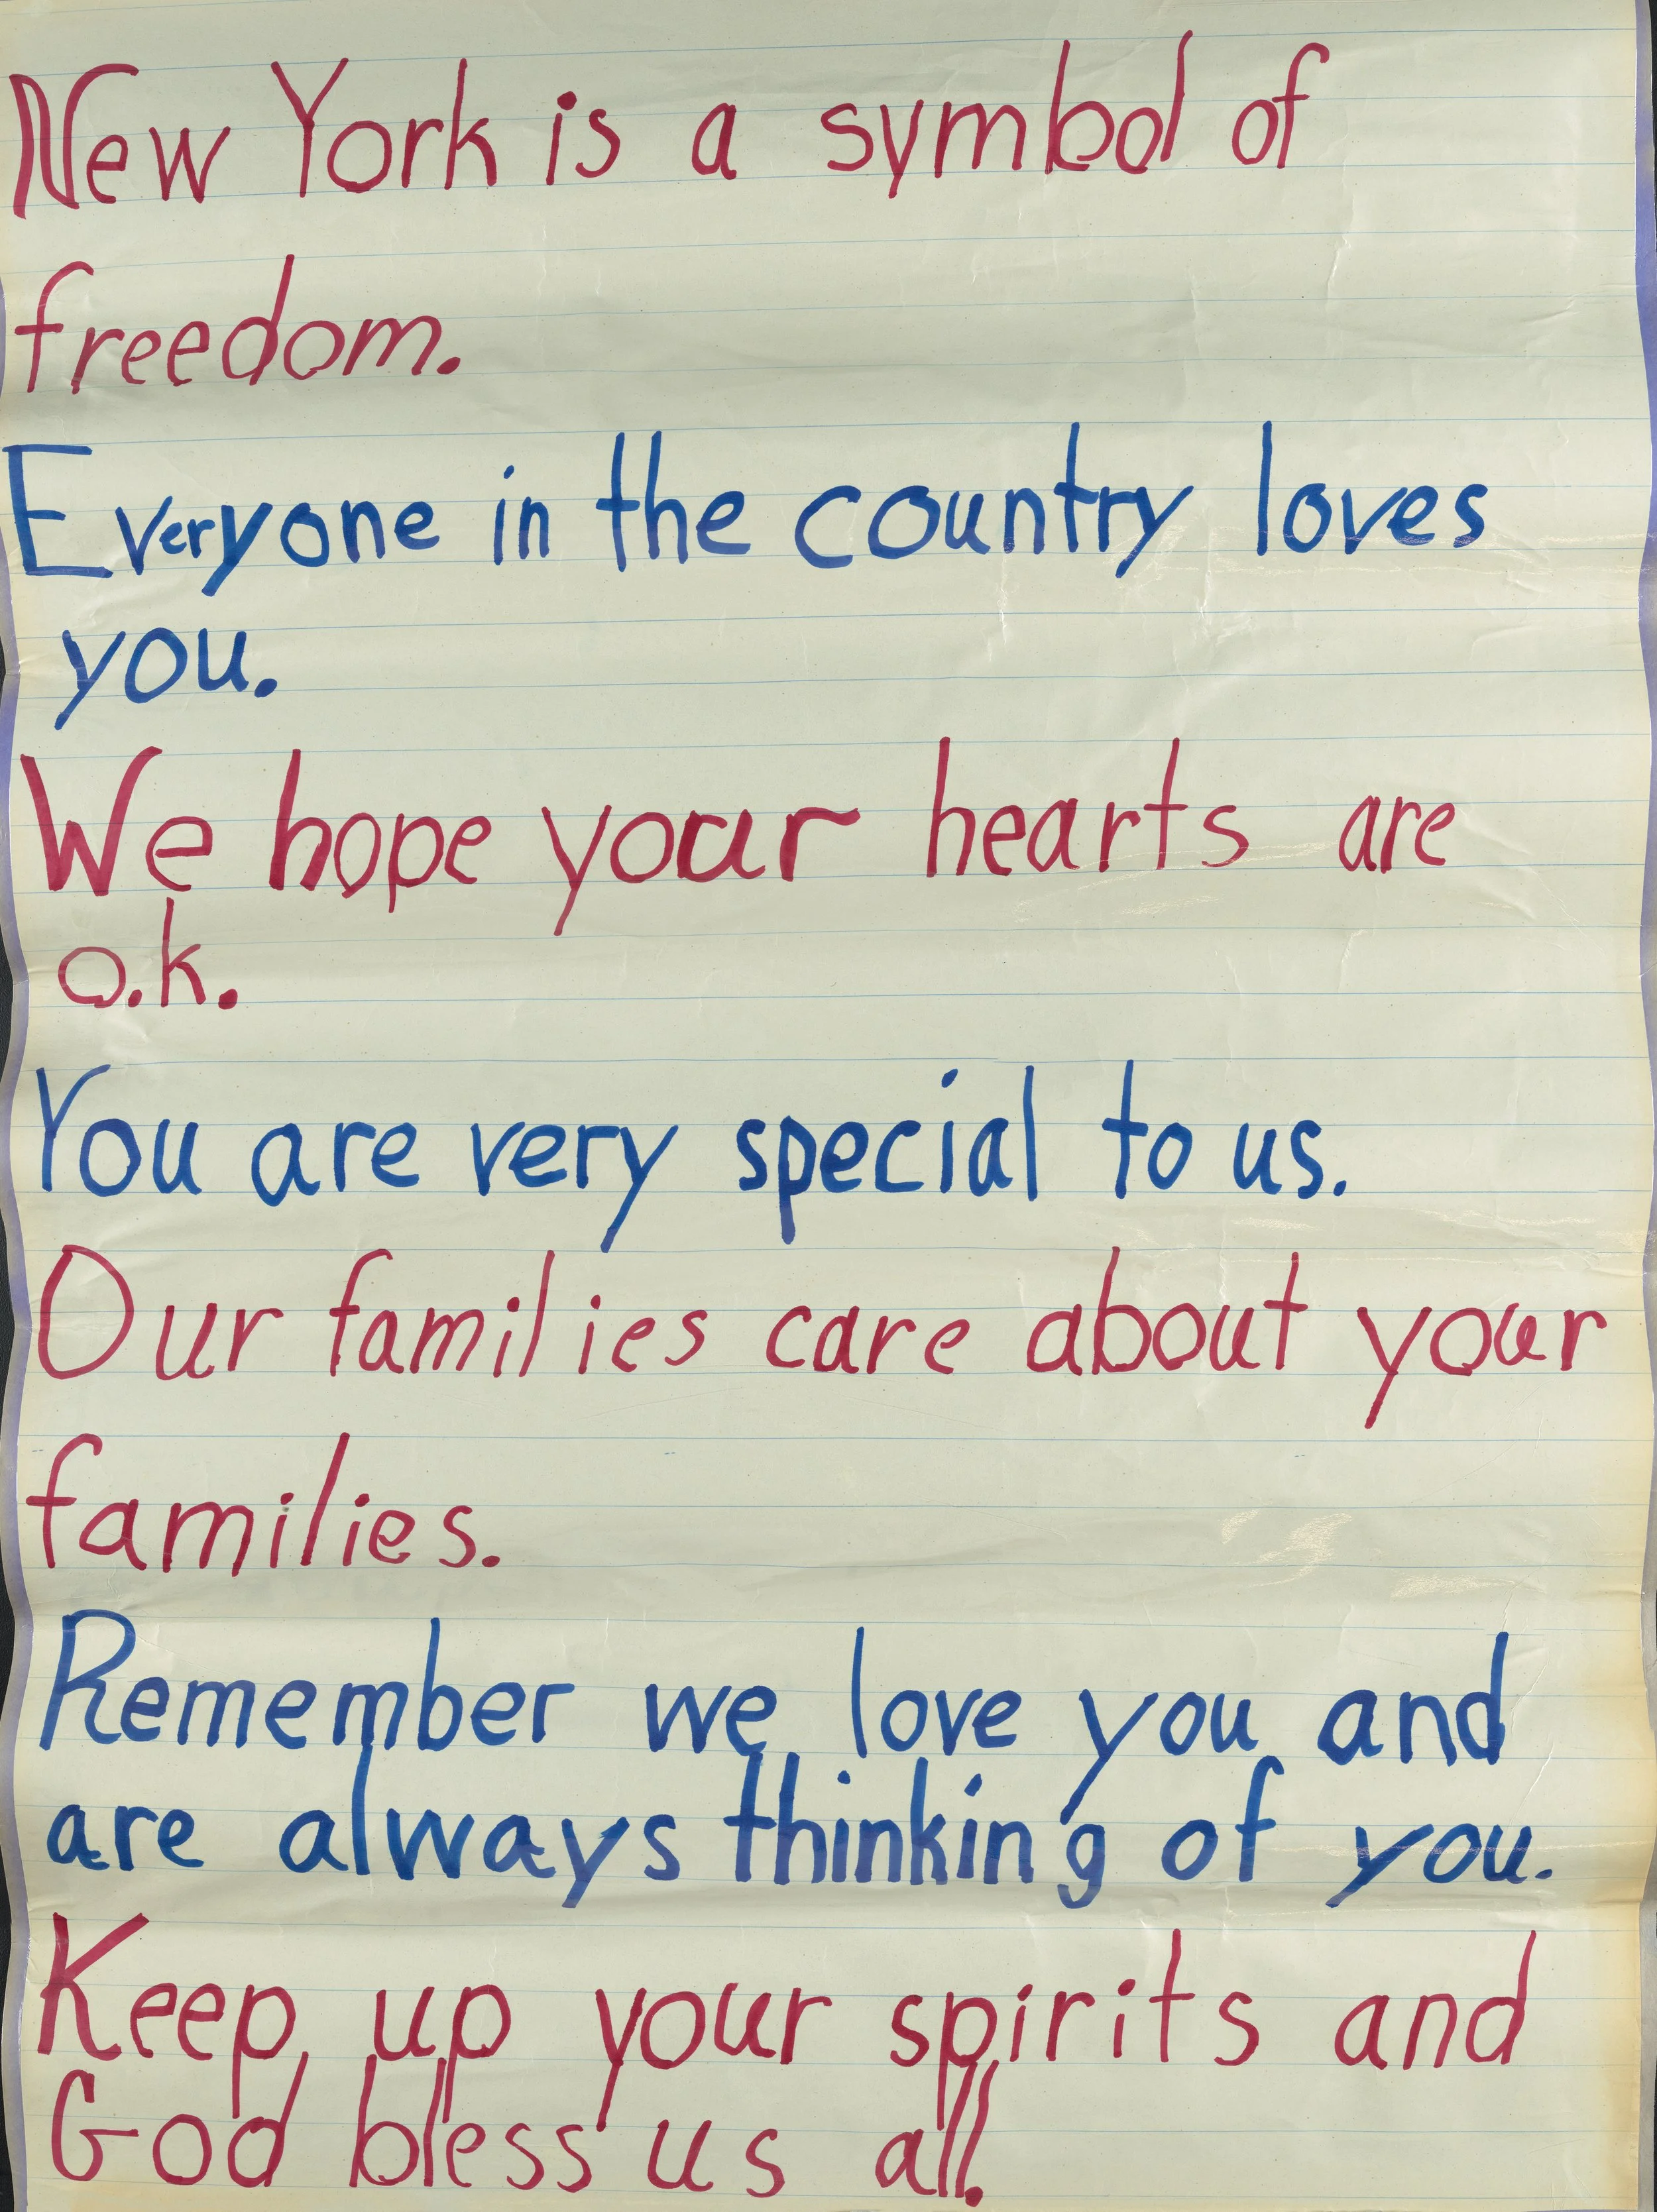 New York is a symbol of
freedom.
Everyone in the country loves
you.
We hope your hearts are
o.k.
You are very special to us.
Our families care about your
families.
Remember we love you and
are always thinking of you.
Keep up your spirits and
God bless us all.